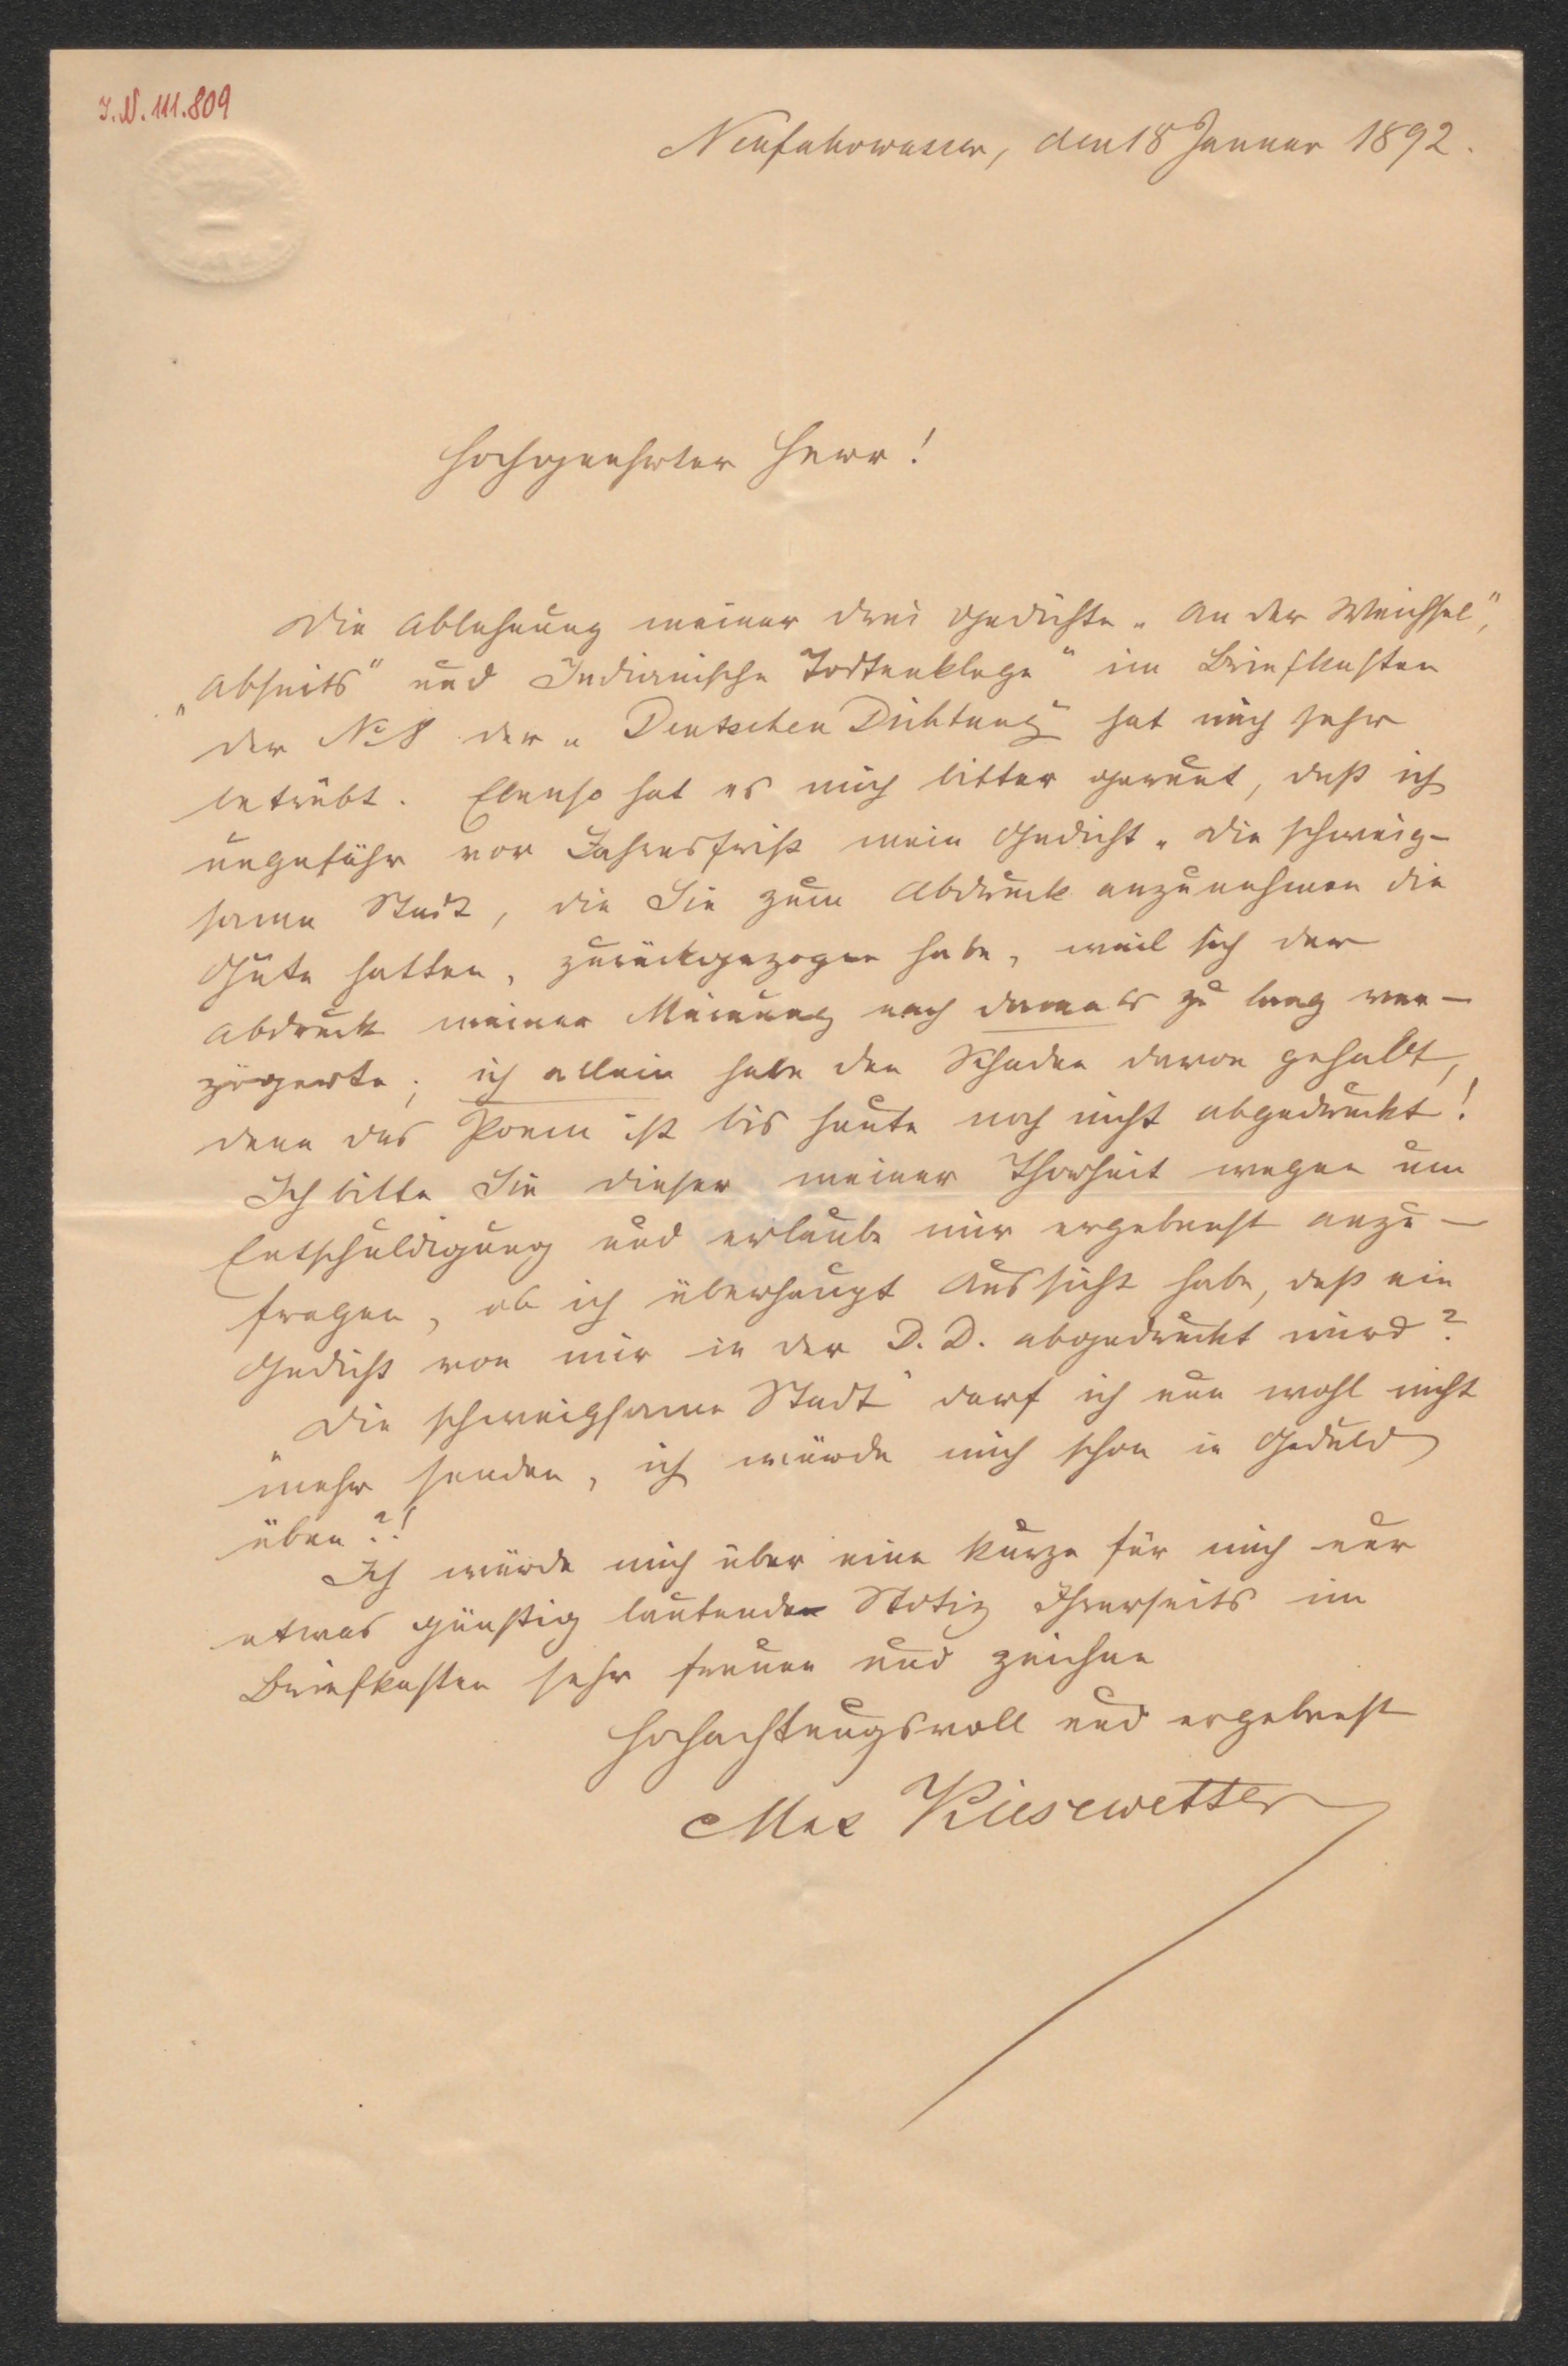 I.N. 111.809
Neufahrwasser, den 18 Januar 1892.
Hochgeehrter Herr!
Die Ablehnung meiner drei Gedichte „An der Weichsel",
„Abseits" und Indianische Todtenklage" im Briefkasten
der No 8 der „Deutschen Dichtung" hat mich sehr
betrübt. Ebenso hat es mich bitter gereut, daß ich
ungefähr vor Jahresfrist mein Gedicht „Die schweig-
same Stadt, die Sie zum Abdruck anzunehmen die
Güte hatten, zurückgezogen habe, weil sich der
Abdruck meiner Meinung nach damals zu lang ver-
zögerte; ich allein habe den Schaden davon gehabt,
denn das Poem ist bis heute noch nicht abgedruckt!
Ich bitte Sie dieser meiner Thorheit wegen um
Entschuldigung und erlaube mir ergebenst anzu-
fragen, ob ich überhaupt Aussicht habe, daß ein
Gedicht von mir in der D. D. abgedruckt wird?
„Die schweigsame Stadt" darf ich nun wohl nicht
mehr senden, ich würde mich schon in Geduld
üben?!
Ich würde mich über eine kurze für mich nur
etwas günstig lautende Notiz Ihrerseits im
Briefkasten sehr freuen und zeichne
Hochachtungsvoll und ergebenst
Max Kiesewetter